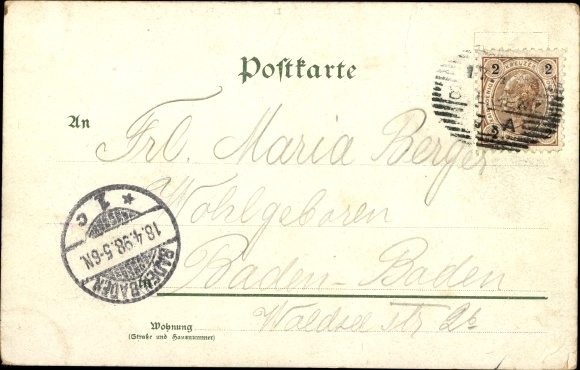 Postkarte
2 KREUZER 2
An
Frl. Maria Berger
Wohlgeboren
Baden-Baden
Waldsee str 26
Wohnung
(Straße und Hausnummer)
* 1 c
18.4.98.5-6N.
BADEN-BADEN